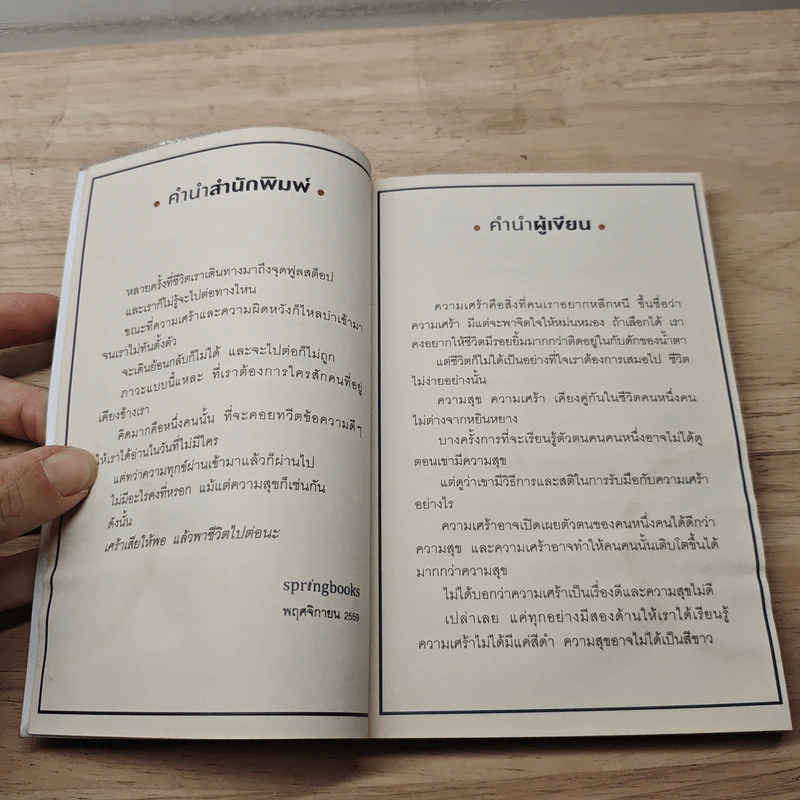 คำนำสำนักพิมพ์
หลายครั้งที่ชีวิตเราเดินทางมาถึงจุดฟูลสต็อป
และเราก็ไม่รู้จะไปต่อทางไหน
ขณะที่ความเศร้าและความผิดหวังก็ไหลบ่าเข้ามา
จนเราไม่ทันตั้งตัว
จะเดินย้อนกลับก็ไม่ได้ และจะไปต่อก็ไม่ถูก
ภาวะแบบนี้แหละ ที่เราต้องการใครสักคนที่อยู่
เคียงข้างเรา
คิดมากคือหนึ่งคนนั้น ที่จะคอยทวีตข้อความดีๆ
ให้เราได้อ่านในวันที่ไม่มีใคร
แต่ทว่าความทุกข์ผ่านเข้ามาแล้วก็ผ่านไป
ไม่มีอะไรคงที่หรอก แม้แต่ความสุขก็เช่นกัน
ดังนั้น
เศร้าเสียให้พอ แล้วพาชีวิตไปต่อนะ
springbooks
พฤศจิกายน 2559
คำนำผู้เขียน
ความเศร้าคือสิ่งที่คนเราอยากหลีกหนี ขึ้นชื่อว่า
ความเศร้า มีแต่จะพาจิตใจให้หม่นหมอง ถ้าเลือกได้ เรา
คงอยากให้ชีวิตมีรอยยิ้มมากกว่าติดอยู่ในกับดักของน้ำตา
แต่ชีวิตก็ไม่ได้เป็นอย่างที่ใจเราต้องการเสมอไป ชีวิต
ไม่ง่ายอย่างนั้น
ความสุข ความเศร้า เคียงคู่กันในชีวิตคนหนึ่งคน
ไม่ต่างจากหยินหยาง
บางครั้งการที่จะเรียนรู้ตัวตนคนคนหนึ่งอาจไม่ได้ดู
ตอนเขามีความสุข
แต่ดูว่าเขามีวิธีการและสติในการรับมือกับความเศร้า
อย่างไร
ความเศร้าอาจเปิดเผยตัวตนของคนหนึ่งคนได้ดีกว่า
ความสุข และความเศร้าอาจทำให้คนคนนั้นเติบโตขึ้นได้
มากกว่าความสุข
ไม่ได้บอกว่าความเศร้าเป็นเรื่องดีและความสุขไม่ดี
เปล่าเลย แค่ทุกอย่างมีสองด้านให้เราได้เรียนรู้
ความเศร้าไม่ได้มีแค่สีดำ ความสุขอาจไม่ได้เป็นสีขาว